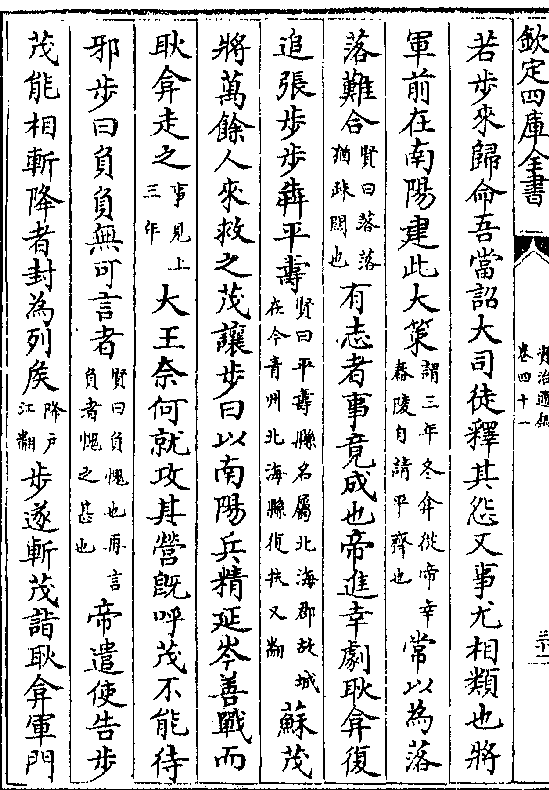 欽定四庫全書
資治通鑑
卷四十一
三十二
若步來歸命吾當詔大司徒釋其怨又事尤相類也將
軍前在南陽建此大策謂三年冬弇從帝幸舂陵自請平齊也常以為落
落難合賢曰落落猶疎闊也有志者事竟成也帝進幸劇耿弇復
追張步步犇平壽賢曰平壽縣名屬北海郡故城在今青州北海縣復扶又翻蘇茂
將萬餘人來救之茂讓步曰以南陽兵精延岑善戰而
耿弇走之事見上三年大王奈何就攻其營既呼茂不能待
邪步曰負負無可言者賢曰負愧也再言負者愧之甚也帝遣使告步
茂能相斬降者封為列侯降戶江翻步遂斬茂詣耿弇軍門